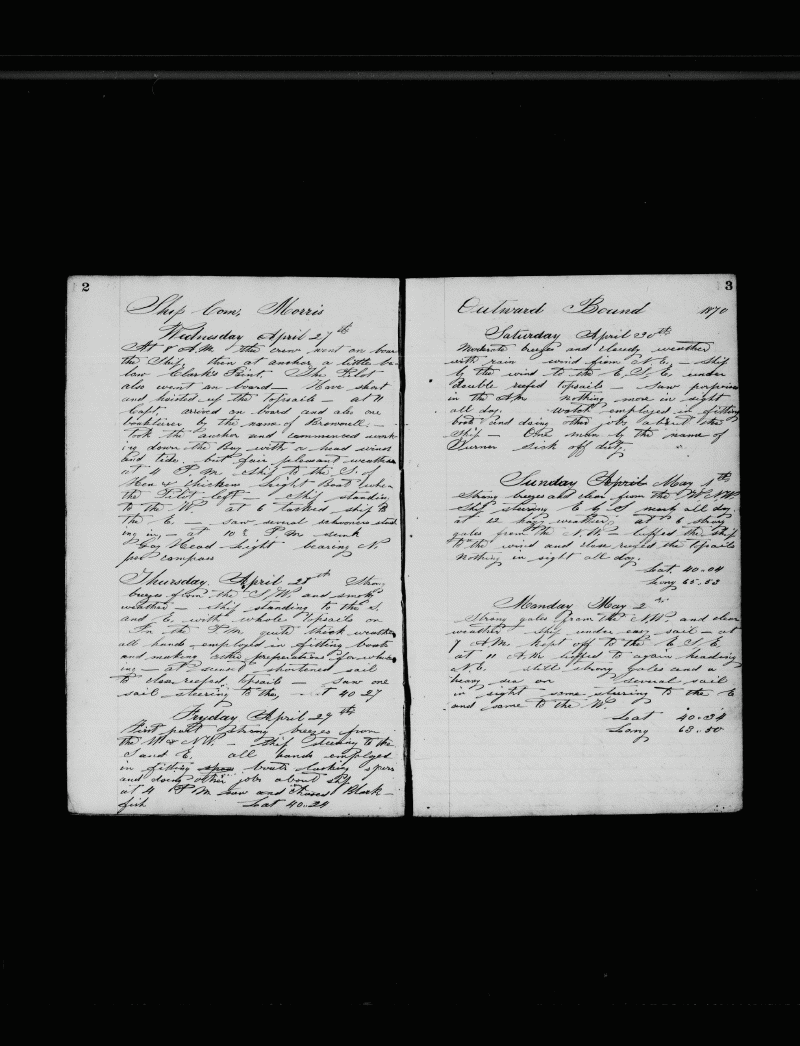 2
Ship Com; Morris
Wednesday April 27th
At 8 A.M. the crew went on boar
the Ship, then at anchor a little be
low Clark's Point. The Pilot
also went on board — Hove short
and hoisted up the topsails — at 11
Capt. arived on board and also one
boatsteerer by the name of Brownell; —
took the anchor and commenced work
ing down the Bay with a head wind
and tide, but fair pleasant weather
at 4 P.M. ship to the S. of
Hen & Chickens Light Boat when
the Pilot left — Ship standing
to the W. at 6 tacked ship to
the E. — saw several schooners stand
ing in — at 10 P.M. sunk
Gay Head Light bearing N.
per compass
Thursday, April 28th Strong
breezes from the S.W. and smoky
weather — ship standing to the S.
and E. with whole topsails on
In the P.M. quite thick weather
all hands employed in fitting boats
and making other preperations for whal
ing — at shortened sail
to close reefed topsails — Saw one
sail steering to the 40 27
Fryday April 29th
First part strong breezes from
the W & N.W. — Ship steering to the
S and E. all hands employed
in fitting boats lashing spars
and doing other jobs about ship
at 4 P.M. saw and chased Black —
fish Lat 40..24
3
Outward Bound 1870
Saturday April 30th
Moderate breezes and cloudy weather
with rain wind from N.E. — ship
by the wind to the E.S.E. under
double reefed topsails — Saw porpoises
in the A.M. nothing more in sight
all day. Watch employed in fitting
boats and doing other jobs about the
Ship — One man by the name of
Turner sick off duty
Sunday April May 1st
Strong breezes and clear from the W.N.W.
Ship steering E by S most all day.
at 12 hazy weather, at 6 strong
gales from the N.W. — luffed the ship
to the wind and close reefed the topsails
nothing in sight all day.
Lat. 40..04
Long 65..53
Monday May 2
Strong gales from the N.W. and clear
weather — ship under easy sail — at
7 A.M. kept off to the E.S.E.
at 11 A.M. luffed to again heading
N.E. still strong gales and a
heavy sea on several sail
in sight some steering to the E
and some to the W.
Lat 40..34
Long 63..50